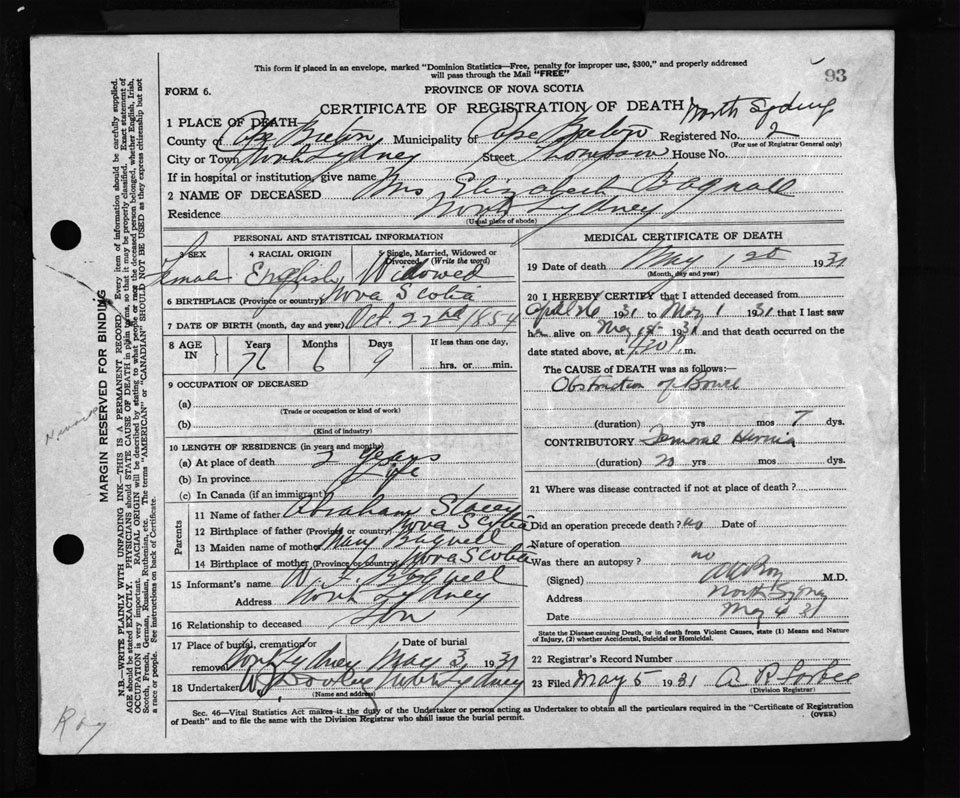 93
This form if placed in an envelope, marked "Dominion Statistics—Free, penalty for improper use, $300," and properly addressed
will pass through the Mail "FREE"
FORM 6.
PROVINCE OF NOVA SCOTIA
CERTIFICATE OF REGISTRATION OF DEATH North Sydney
1 PLACE OF DEATH
County of Cape Breton Municipality of Cape Breton Registered No. 2
(For use of Registrar General only)
City or Town North Sydney Street Thompson House No.
If in hospital or institution, give name
2 NAME OF DECEASED Mrs Elizabeth Bagnall
Residence North Sydney
(Usual place of abode)
PERSONAL AND STATISTICAL INFORMATION
3 SEX 4 RACIAL ORIGIN 5 Single, Married, Widowed or
Divorced (Write the word)
Female English Widowed
6 BIRTHPLACE (Province or country) Nova Scotia
7 DATE OF BIRTH (month, day and year) Oct. 22nd 1854
8 AGE IN Years Months Days If less than one day,
76 6 9 hrs. or min.
9 OCCUPATION OF DECEASED
(a)
(Trade or occupation or kind of work)
(b)
(Kind of industry)
10 LENGTH OF RESIDENCE (in years and months)
(a) At place of death 2 years
(b) In province life
(c) In Canada (if an immigrant)
Parents
11 Name of father Abraham Stacey
12 Birthplace of father (Province or country) Nova Scotia
13 Maiden name of mother Mary
14 Birthplace of mother (Province or country) Nova Scotia
15 Informant's name W. Bagnell
Address North Sydney
16 Relationship to deceased Son
17 Place of burial, cremation or Date of burial
removal North Sydney May 3, 1931
18 Undertaker North Sydney
(Name and address)
MEDICAL CERTIFICATE OF DEATH
19 Date of death May 1st 1931
(Month, day and year)
20 I HEREBY CERTIFY that I attended deceased from
April 26 1931 to May 1 1931 that I last saw
h alive on May 1st 1931 and that death occurred on the
date stated above, at 4.20 P. m.
The CAUSE OF DEATH was as follows:—
Obstruction of Bowel
(duration) yrs mos 7 dys.
CONTRIBUTORY Femoral Hernia
(duration) 20 yrs mos dys.
21 Where was disease contracted if not at place of death?
Did an operation precede death? no Date of
Nature of operation
Was there an autopsy? no
(Signed) Roy M.D.
Address North Sydney
Date May 4 31
State the Disease causing Death, or in death from Violent Causes, state (1) Means and Nature
of Injury, (2) whether Accidental, Suicidal or Homicidal.
22 Registrar's Record Number
23 Filed May 5 1931 A R Forbes
(Division Registrar)
Sec. 46—Vital Statistics Act makes it the duty of the Undertaker or person acting as Undertaker to obtain all the particulars required in the "Certificate of Registration
of Death" and to file the same with the Division Registrar who shall issue the burial permit. (OVER)
MARGIN RESERVED FOR BINDING
N.B.—WRITE PLAINLY WITH UNFADING INK—THIS IS A PERMANENT RECORD. Every item of information should be carefully supplied.
AGE should be stated EXACTLY. PHYSICIANS should STATE CAUSE OF DEATH in plain terms, so that it may be properly classified. Exact statement of
OCCUPATION is very important. RACIAL ORIGIN will be described by stating to what people or race the deceased person belonged, whether English, Irish,
Scotch, French, German, Russian, Ruthenian, etc. The terms "AMERICAN" or "CANADIAN" SHOULD NOT BE USED as they express citizenship but not
a race or people. See instructions on back of Certificate.
Roy